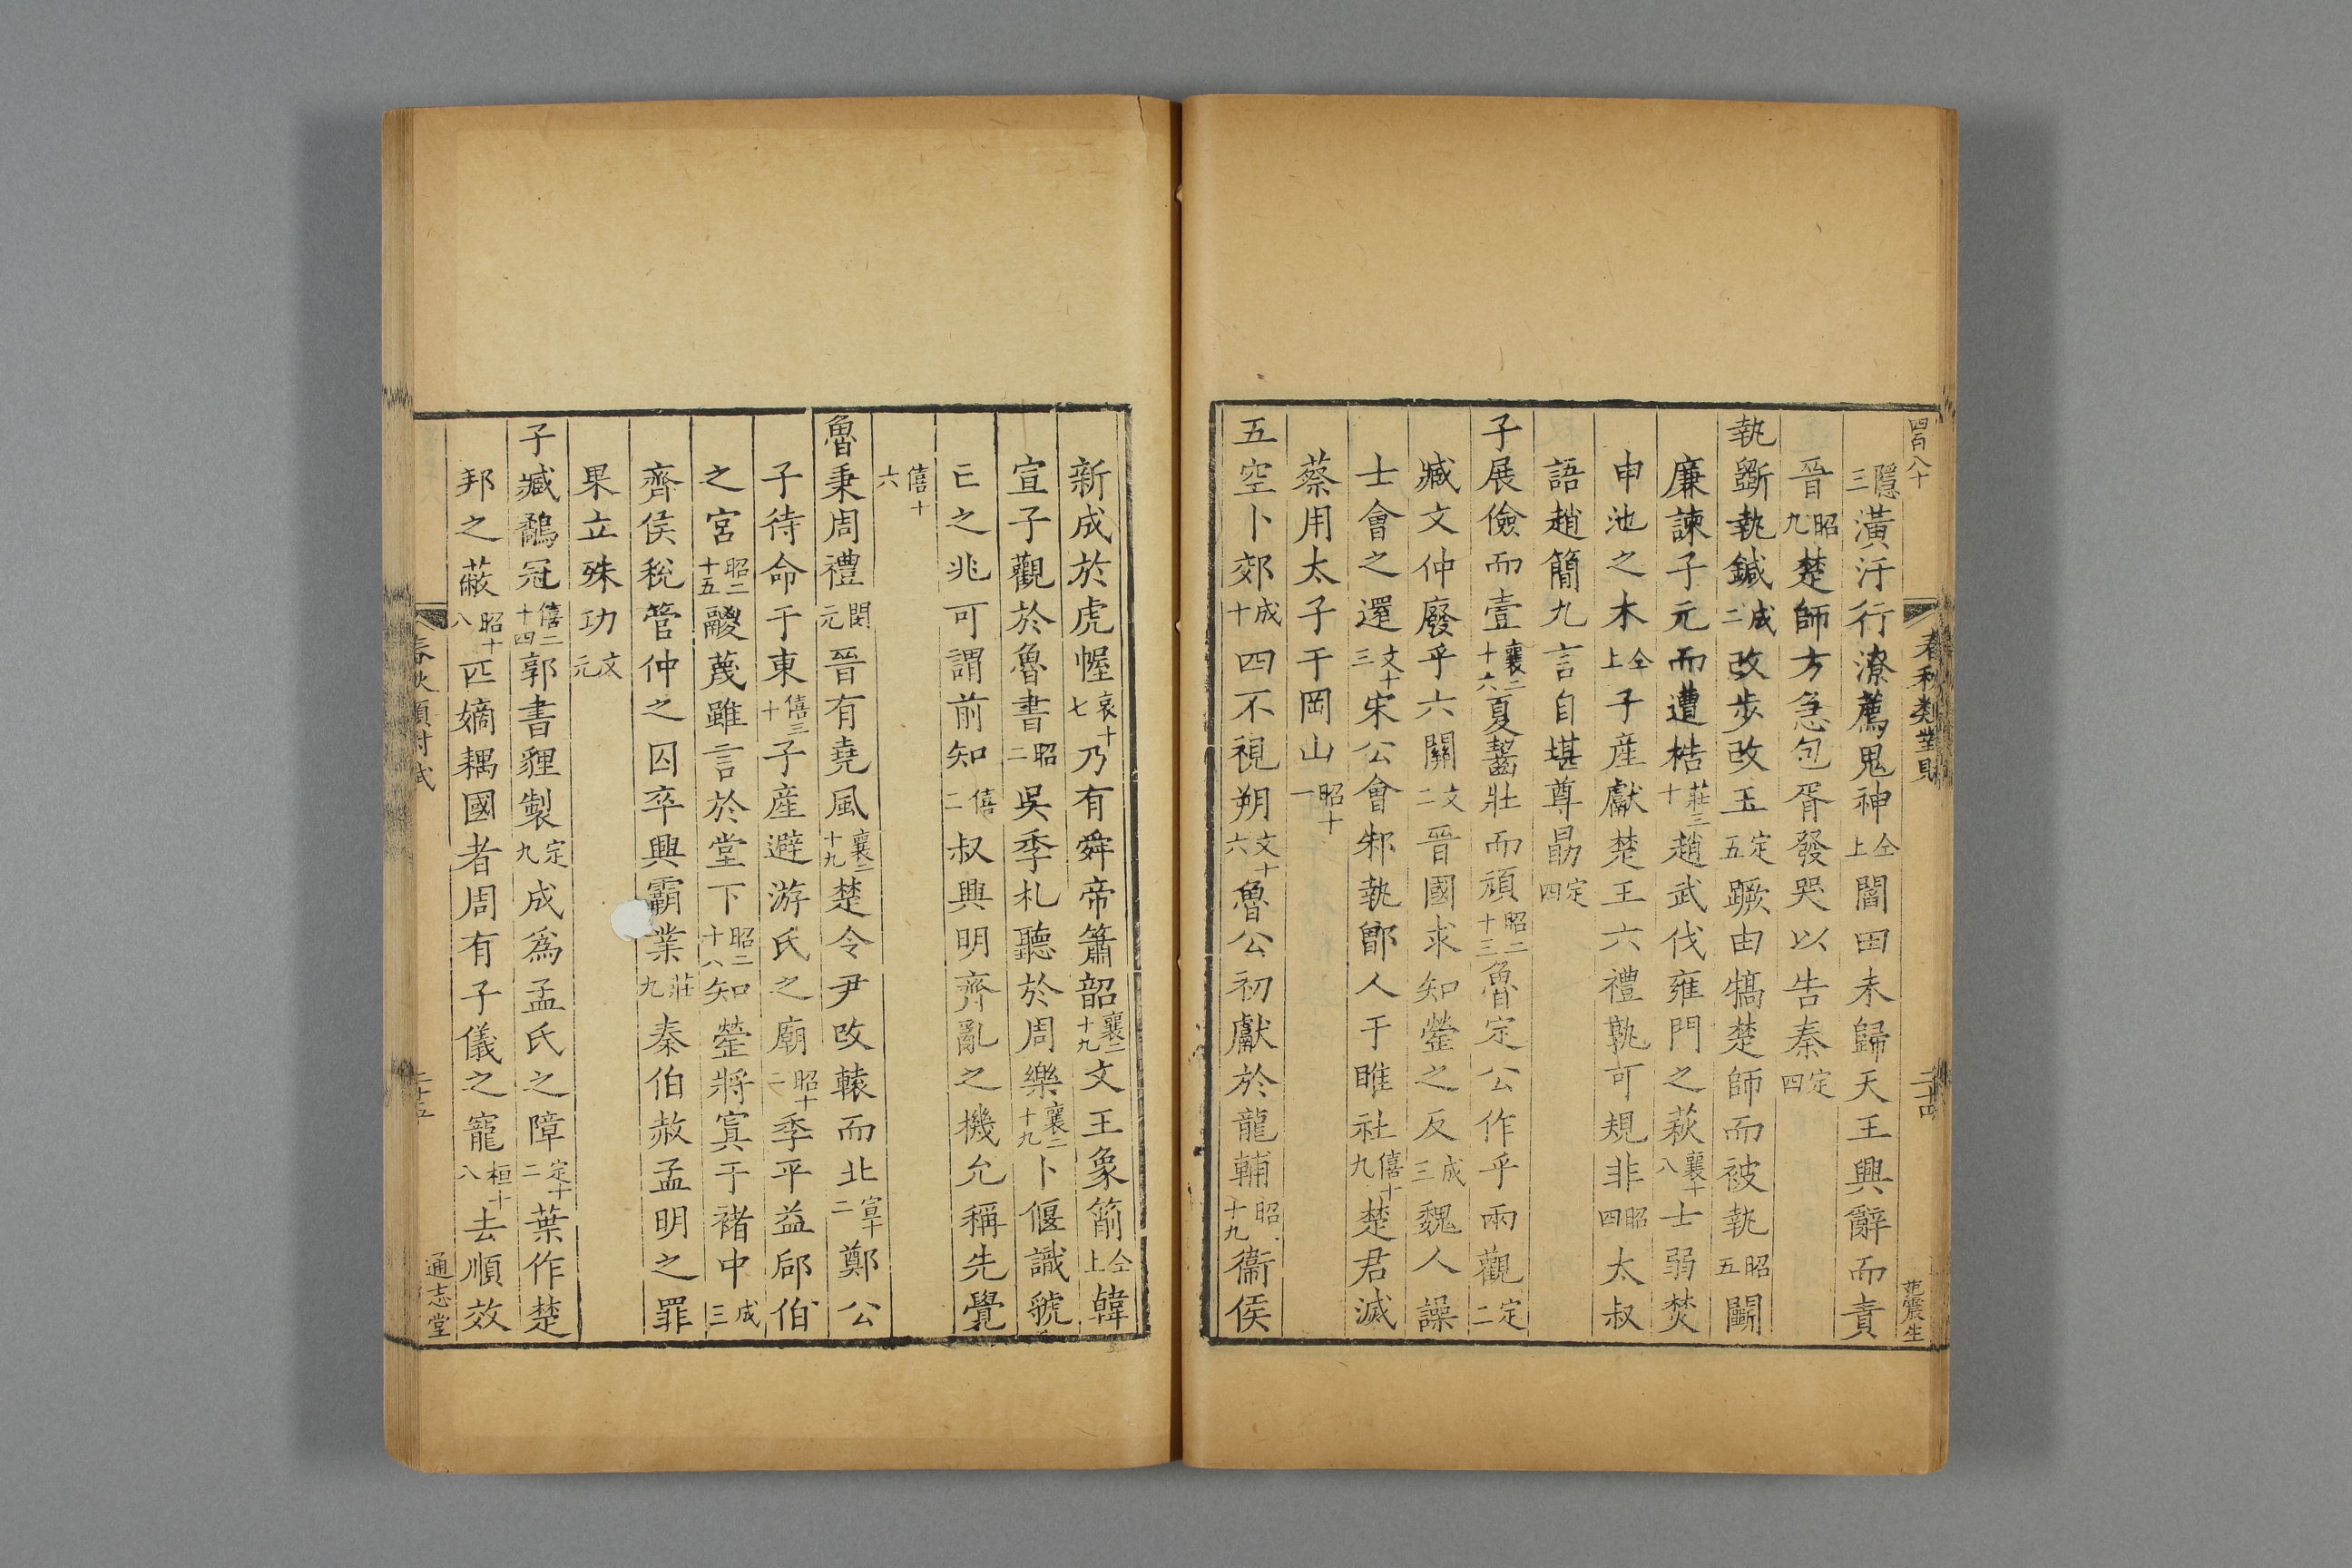 四百八十
春秋類對賦
二十四
范震生
隱三潢汙行潦薦鬼神仝上閻田未歸天王興辭而責
晉昭九楚師方急包胥發哭以告秦定四
執斵執鍼成二改步改玉定五蹶由犒楚師而被執昭五鬬
廉諫子元而遭梏莊三十趙武伐雍門之萩襄十八士弱焚
申池之木仝上子產獻楚王六禮孰可規非昭四太叔
語趙簡九言自堪尊勗定四
子展儉而壹襄二十六夏齧壯而頑昭二十三魯定公作乎兩觀定二
臧文仲廢乎六關文二晉國求知罃之反成三魏人譟
士會之還文十三宋公會邾執鄫人于睢社僖十九楚君滅
蔡用太子于岡山昭十一
五空卜郊成十四不視朔文十六魯公初獻於龍輔昭十九衞侯
新成於虎幄哀十七乃有舜帝簫韶襄二十九文王象箾仝上韓
宣子觀於魯書昭二吳季札聽於周樂襄二十九卜偃識虢
亡之兆可謂前知僖二叔興明齊亂之機允稱先覺
僖十六
魯秉周禮閔元晉有堯風襄二十九楚令尹改轅而北宣十二鄭公
子待命于東僖三十子產避游氏之廟昭十二季平益郈伯
之宮昭二十五鬷蔑雖言於堂下昭二十八知罃將寘于褚中成三
齊侯稅管仲之囚卒興霸業莊九秦伯赦孟明之罪
果立殊功文元
子臧鷸冠僖二十四郭書貍製定九成爲孟氏之障定十二葉作楚
邦之蔽昭十八匹嫡耦國者周有子儀之寵桓十八去順效
春秋類對賦
二十五
通志堂